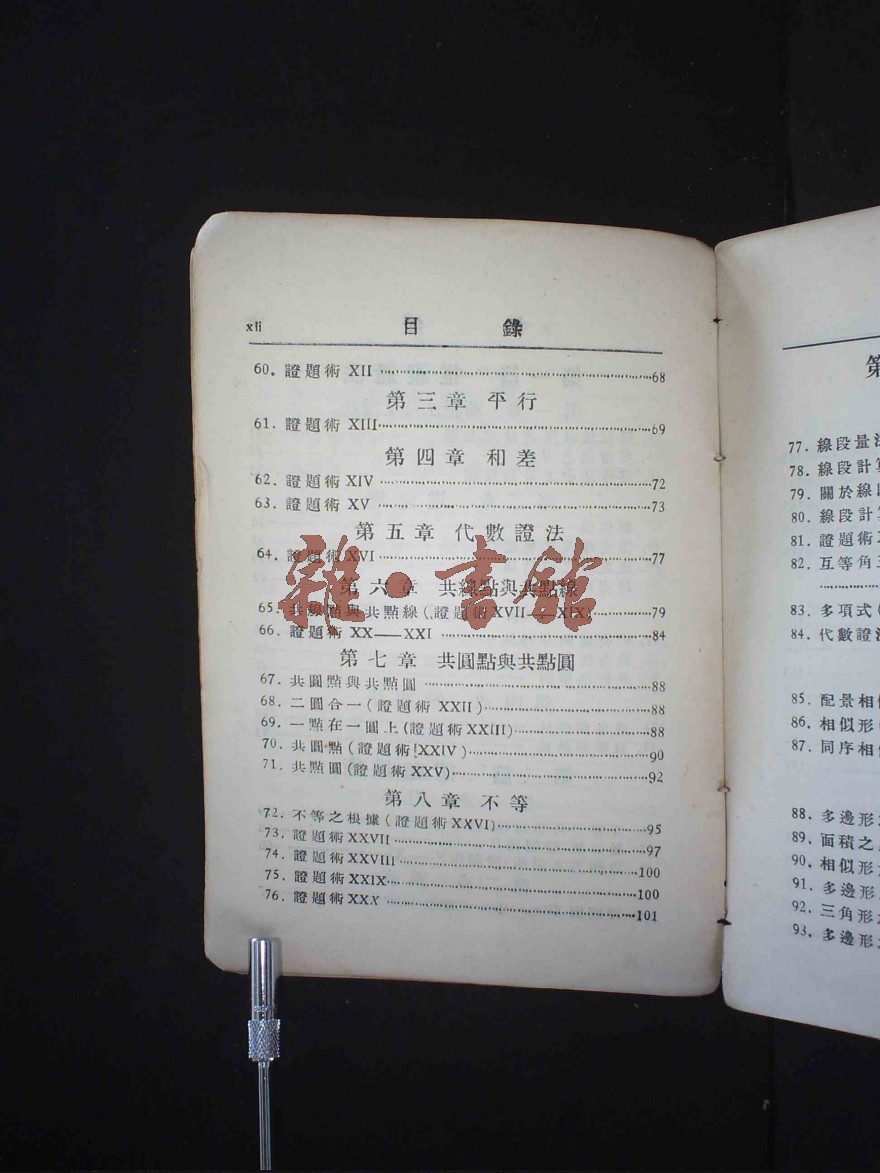 xii 目錄
60. 證題術 XII ……68
第三章 平行
61. 證題術 XIII……69
第四章 和差
62. 證題術 XIV ……72
63. 證題術 XV ……73
第五章 代數證法
64. 證題術 XVI ……77
第六章 共線點與共點線
65. 共線點與共點線(證題術 XVII——XIX)……79
66. 證題術 XX——XXI ……84
第七章 共圓點與共點圓
67. 共圓點與共點圓 ……88
68. 二圓合一(證題術 XXII)……88
69. 一點在一圓上(證題術XXIII)……88
70. 共圓點(證題術 XXIV)……90
71. 共點圓(證題術 XXV)……92
第八章 不等
72. 不等之根據(證題術XXVI)……95
73. 證題術XXVII ……97
74. 證題術XXVIII ……100
75. 證題術XXIX……100
76. 證題術XXX ……101
雜·書館
第
77. 線段量法
78. 線段計算
79. 關於線段
80. 線段計
81. 證題術
82. 互等角三
……
83. 多項式(
84. 代數證法
85. 配景相似
86. 相似形(
87. 同序相似
88. 多邊形
89. 面積之
90. 相似形
91. 多邊形
92. 三角形
93. 多邊形